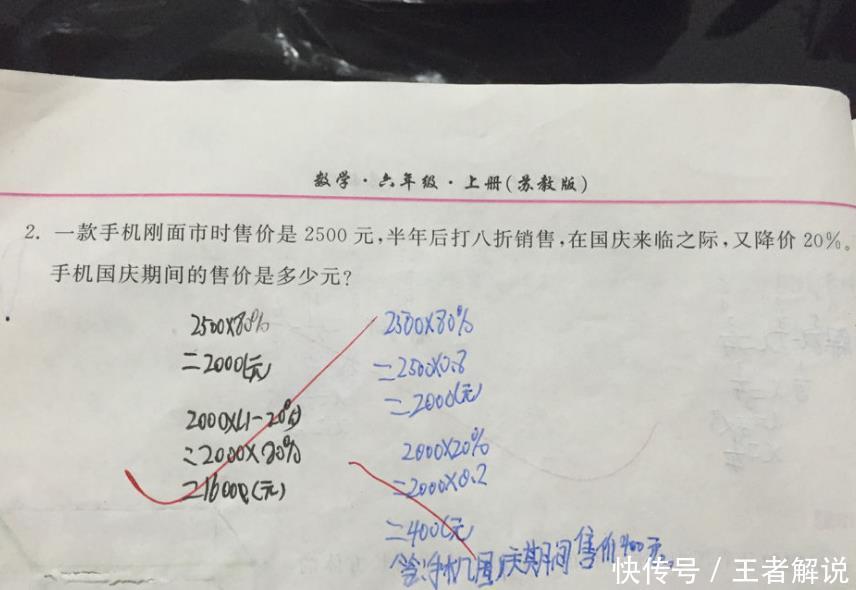 数学·六年级·上册(苏教版)
2. 一款手机刚面市时售价是 2500 元,半年后打八折销售,在国庆来临之际,又降价 20%。
手机国庆期间的售价是多少元?
2500×80%
=2000(元)
2000×(1-20%)
=2000×80%
=1600(元)
2500×80%
=2500×0.8
=2000(元)
2000×20%
=2000×0.2
=400(元)
答:手机国庆期间售价400元。
快传号/王者解说